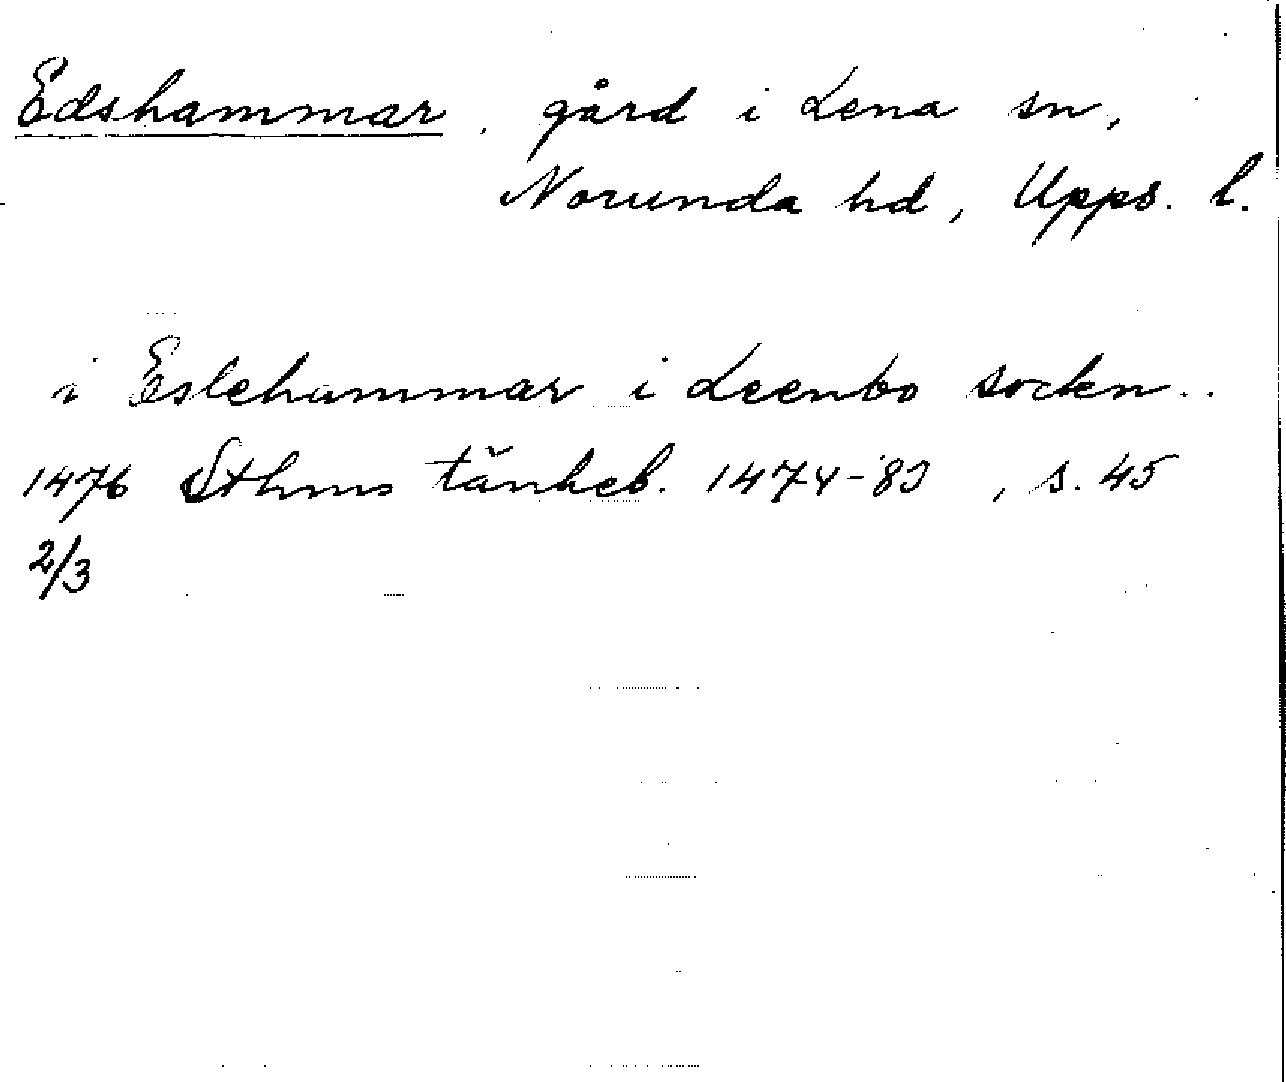 Edshammar, gård i Lena sn,
Norunda hd, Upps. l.
i Eslehammar i Leenbo socken..
1476 Sthms tänkeb. 1474-83, s. 45
2/3